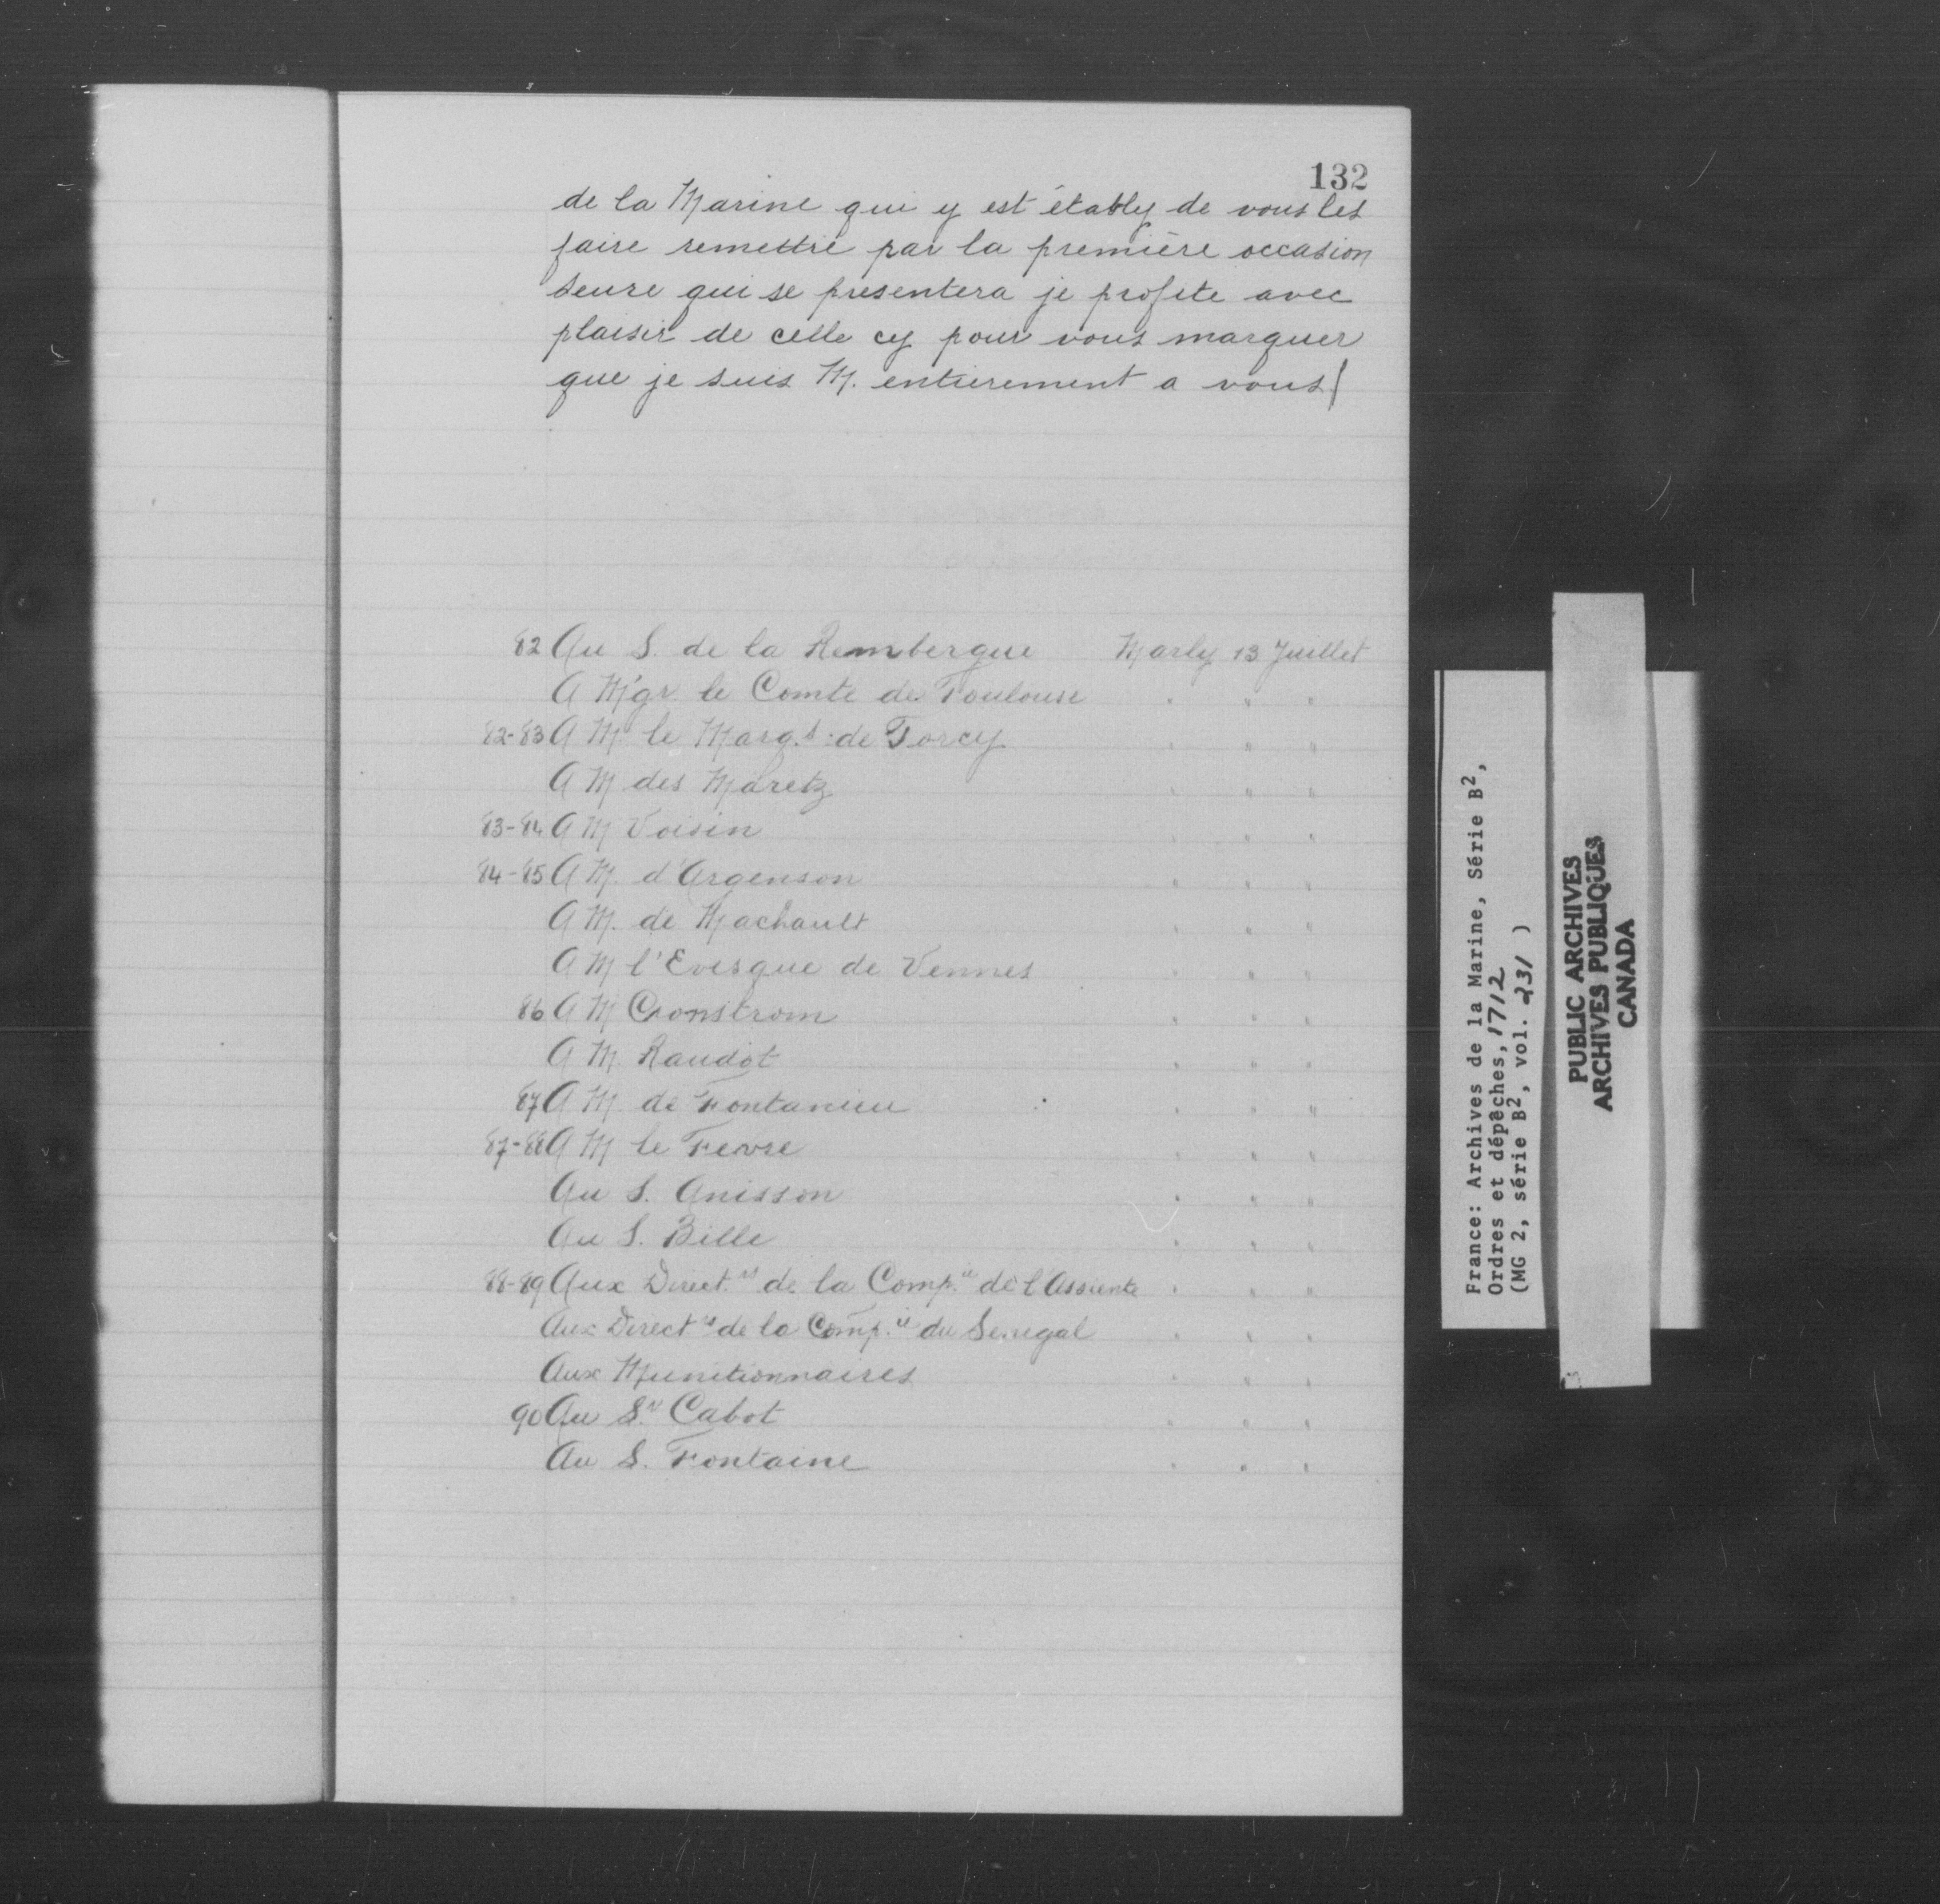 132
de la Marine qui y est étably de vous les
faire remettre par la première occasion
seure qui se presentera je profite avec
plaisir de celle cy pour vous marquer
que je suis M. entierement a vous/
82 Au S. de la Rembergue Marly 13 Juillet
A M'gr. le Comte de Toulouse " " "
82-83 A M le Marq.s de Torcy " " "
A M des Maretz " " "
83-84 A M Voisin " " "
84-85 A M. d'Argenson " " "
A M. de Machault " " "
A M l'Evesque de Vennes " " "
86 A M Cronstrom " " "
A M. Raudot " " "
87 A M. de Fontanieu " " "
87-88 A M le Fevre " " "
Au S. Anisson " " "
Au S. Bille " " "
88-89 Aux Direct.rs de la Comp.ie de l'Assiente " " "
Aux Direct.rs de la Comp.ie du Senegal " " "
Aux Munitionnaires " " "
90 Au S.r Cabot " " "
Au S. Fontaine " " "
France: Archives de la Marine, Série B2,
Ordres et dépêches, 1712
(MG 2, série B2, vol. 231 )
PUBLIC ARCHIVES
ARCHIVES PUBLIQUES
CANADA